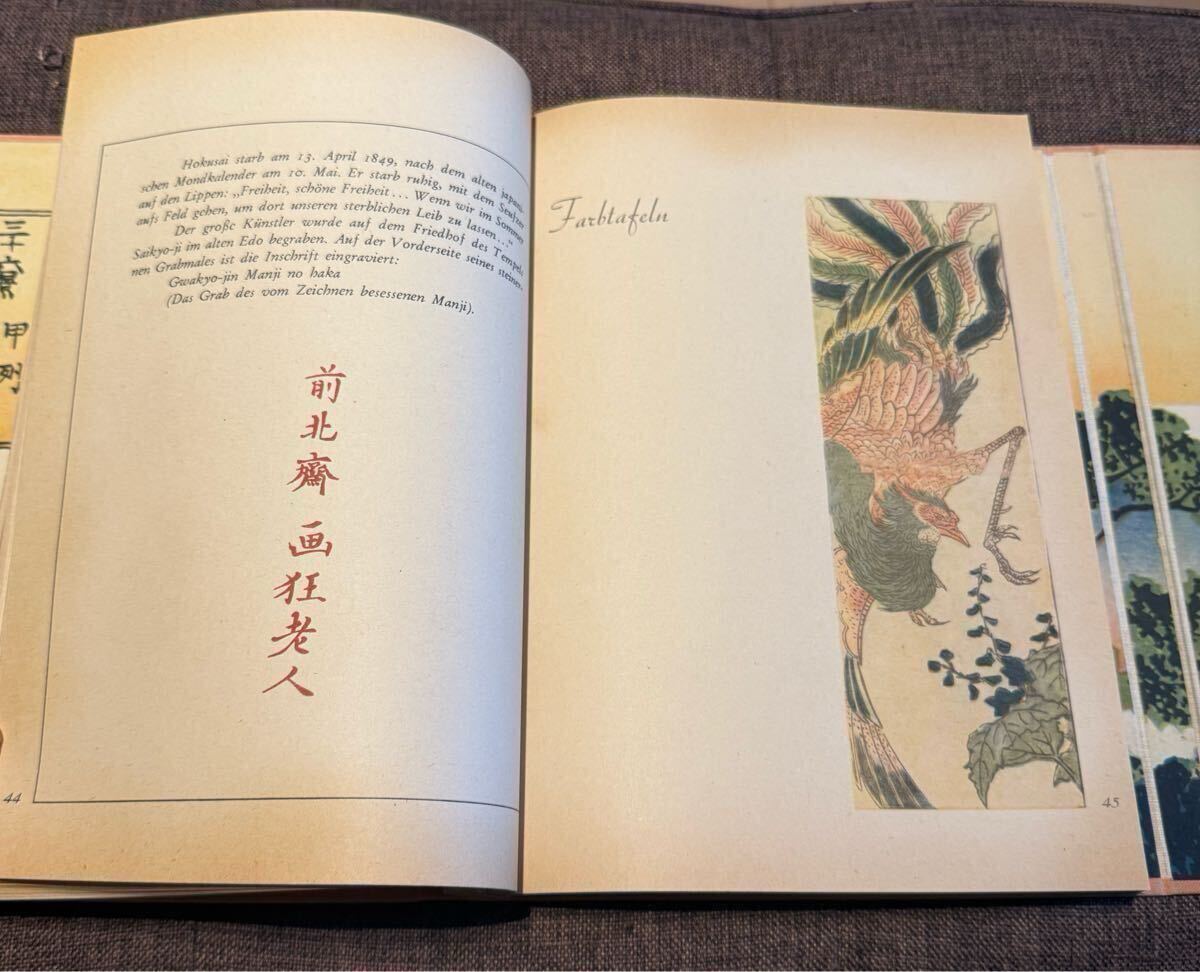 三十 甲
列
Hokusai starb am 13. April 1849, nach dem alten japani-
schen Mondkalender am 10. Mai. Er starb ruhig, mit dem Seufzer
auf den Lippen: „Freiheit, schöne Freiheit... Wenn wir im Sommer
aufs Feld gehen, um dort unseren sterblichen Leib zu lassen...“
Der große Künstler wurde auf dem Friedhof des Tempels
Saikyo-ji im alten Edo begraben. Auf der Vorderseite seines steiner-
nen Grabmales ist die Inschrift eingraviert:
Gwakyo-jin Manji no haka
(Das Grab des vom Zeichnen besessenen Manji).
前北齋 画狂老人
44
Farbtafeln
45